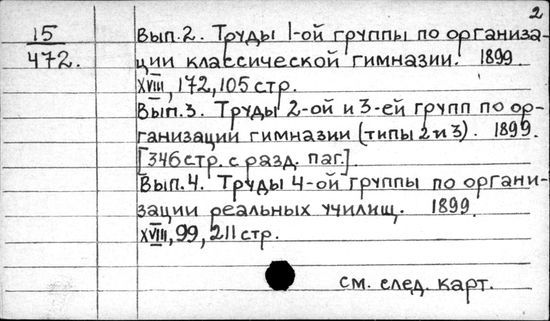 2
15
472.
Вып.2. Труды 1-ой группы по организа-
ции классической гимназии. 1899.
XVIII, 172, 105 стр.
Вып.3. Труды 2-ой и 3-ей групп по ор-
ганизации гимназии (типы 2 и 3). 1899.
[346 стр. с разд. паг.].
Вып.4. Труды 4-ой группы по органи-
зации реальных училищ. 1899.
XVIII, 99, 211 стр.
см. след. карт.